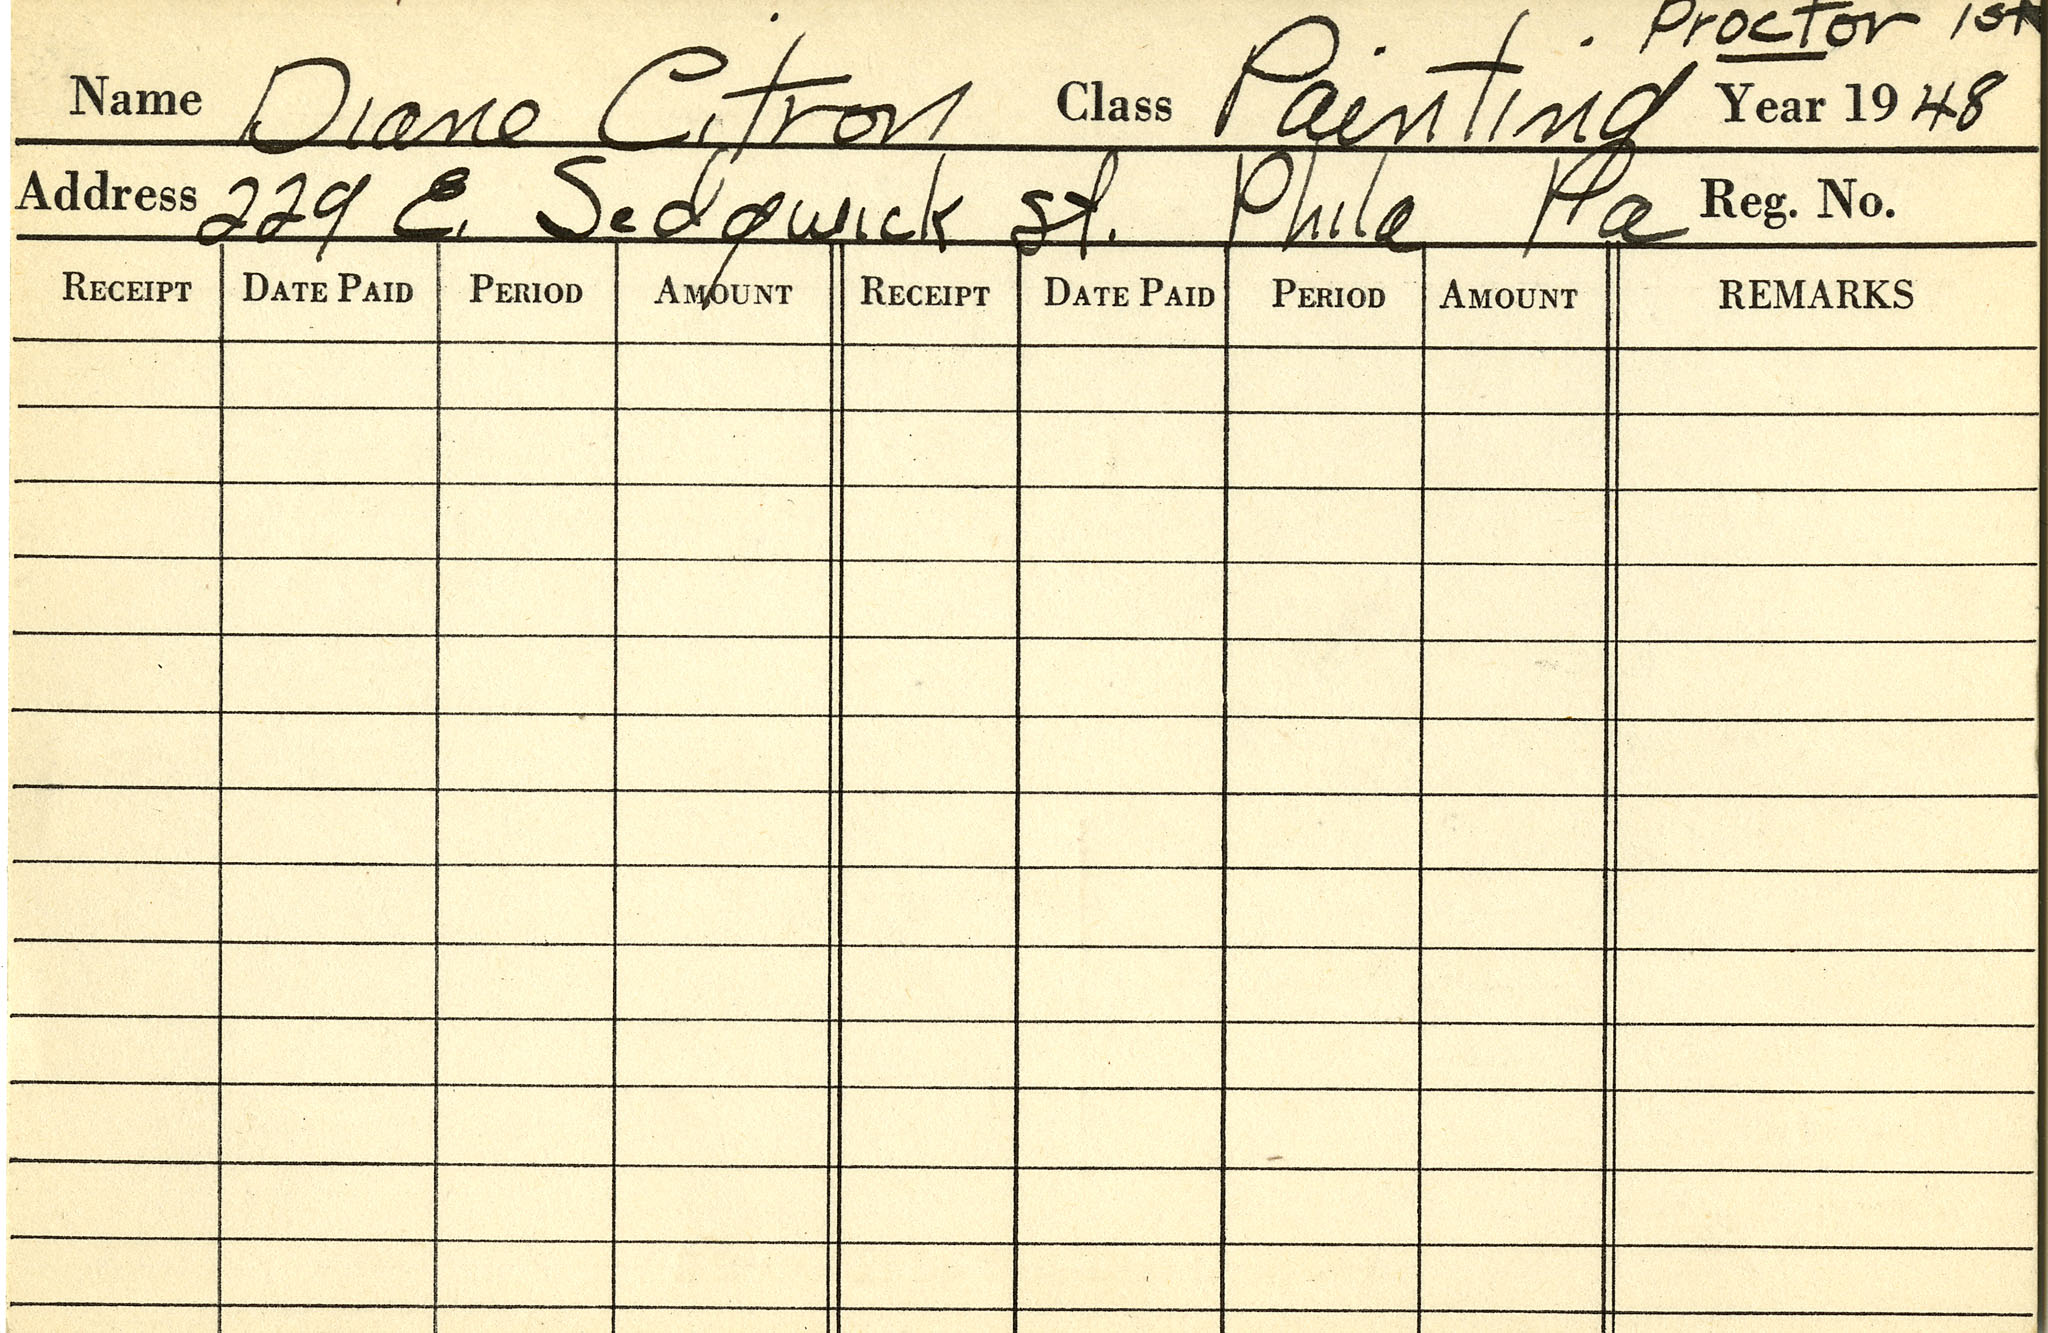 Proctor 1st
Name Diane Citron Class Painting Year 1948
Address 229 E. Sedgwick St. Phila Pa Reg. No.
RECEIPT DATE PAID PERIOD AMOUNT RECEIPT DATE PAID PERIOD AMOUNT REMARKS